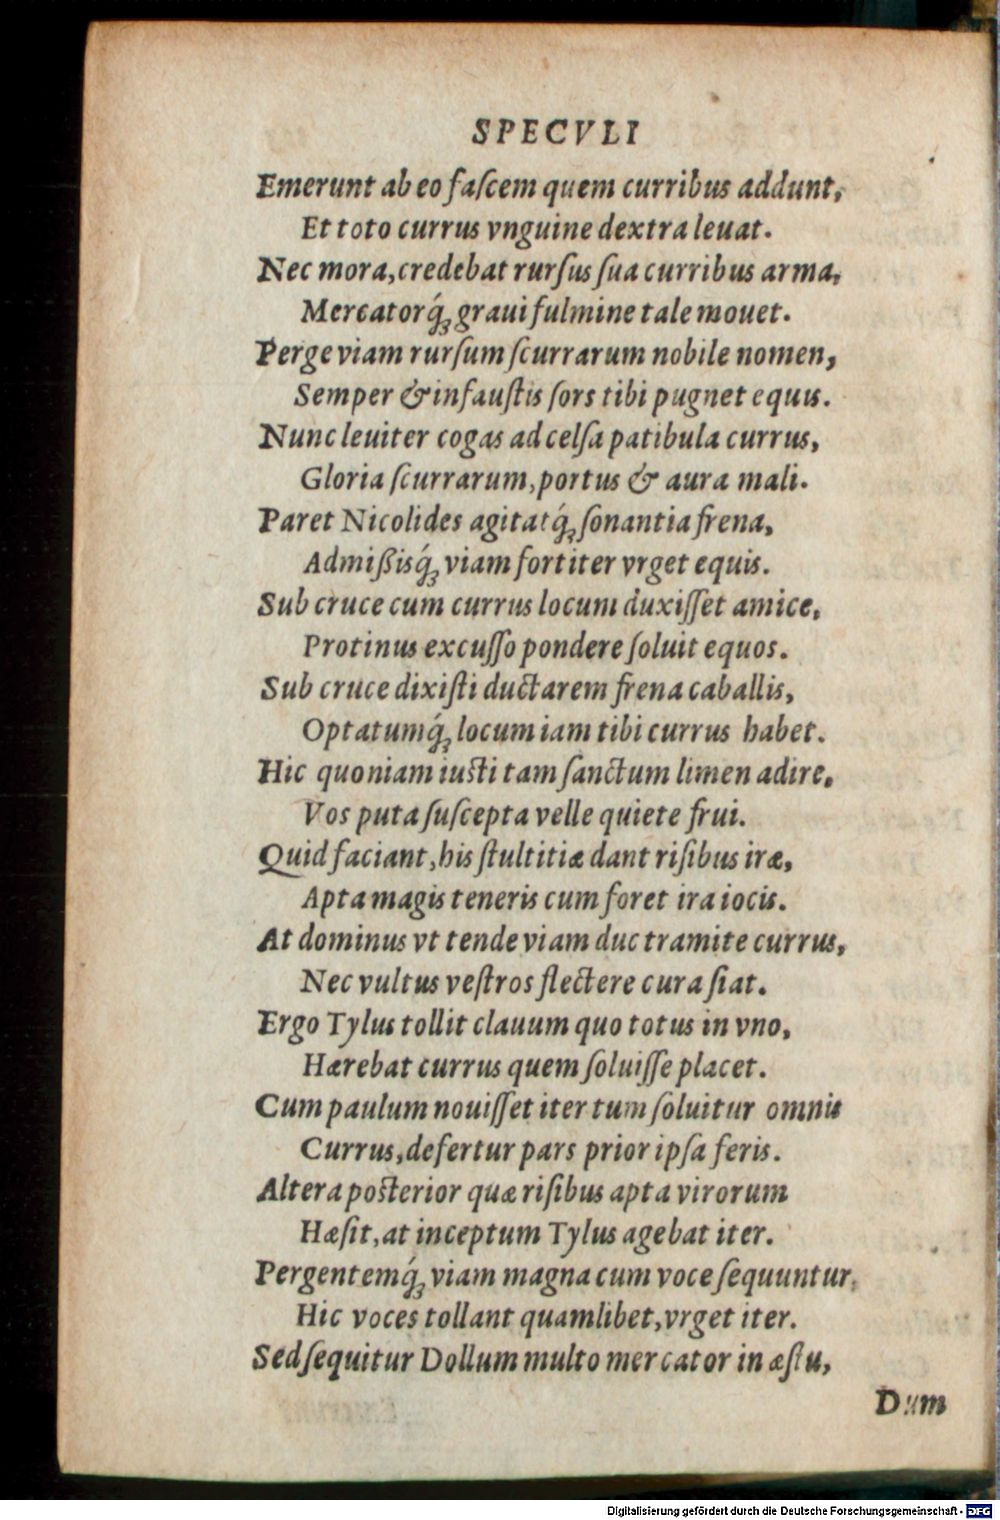 SPECVLI
Emerunt ab eo faſcem quem curribus addunt,
Et toto currus vnguine dextra leuat.
Nec mora, credebat rurſus ſua curribus arma,
Mercatorq́ꝫ graui fulmine tale mouet.
Perge viam rurſum ſcurrarum nobile nomen,
Semper & infauſtis ſors tibi pugnet equis.
Nunc leuiter cogas ad celſa patibula currus,
Gloria ſcurrarum, portus & aura mali.
Paret Nicolides agitatq́ꝫ ſonantia frena,
Admißisq́ꝫ viam fortiter vrget equis.
Sub cruce cum currus locum duxiſſet amice,
Protinus excuſſo pondere ſoluit equos.
Sub cruce dixiſti ductarem frena caballis,
Optatumq́ꝫ locum iam tibi currus habet.
Hic quoniam iusti tam ſanctum limen adire,
Vos puta ſuſcepta velle quiete frui.
Quid faciant, his ſtultitiæ dant riſibus iræ,
Apta magis teneris cum foret ira iocis.
At dominus vt tende viam duc tramite currus,
Nec vultus veſtros flectere cura fiat.
Ergo Tylus tollit clauum quo totus in vno,
Hærebat currus quem ſoluiſſe placet.
Cum paulum nouiſſet iter tum ſoluitur omnis
Currus, defertur pars prior ipſa feris.
Altera posterior quæ riſibus apta virorum
Hæſit, at inceptum Tylus agebat iter.
Pergentemq́ꝫ viam magna cum voce ſequuntur,
Hic voces tollant quamlibet, vrget iter.
Sed ſequitur Dollum multo mercator in æſtu,
Dum
Digitalisierung gefördert durch die Deutsche Forschungsgemeinschaft - DFG